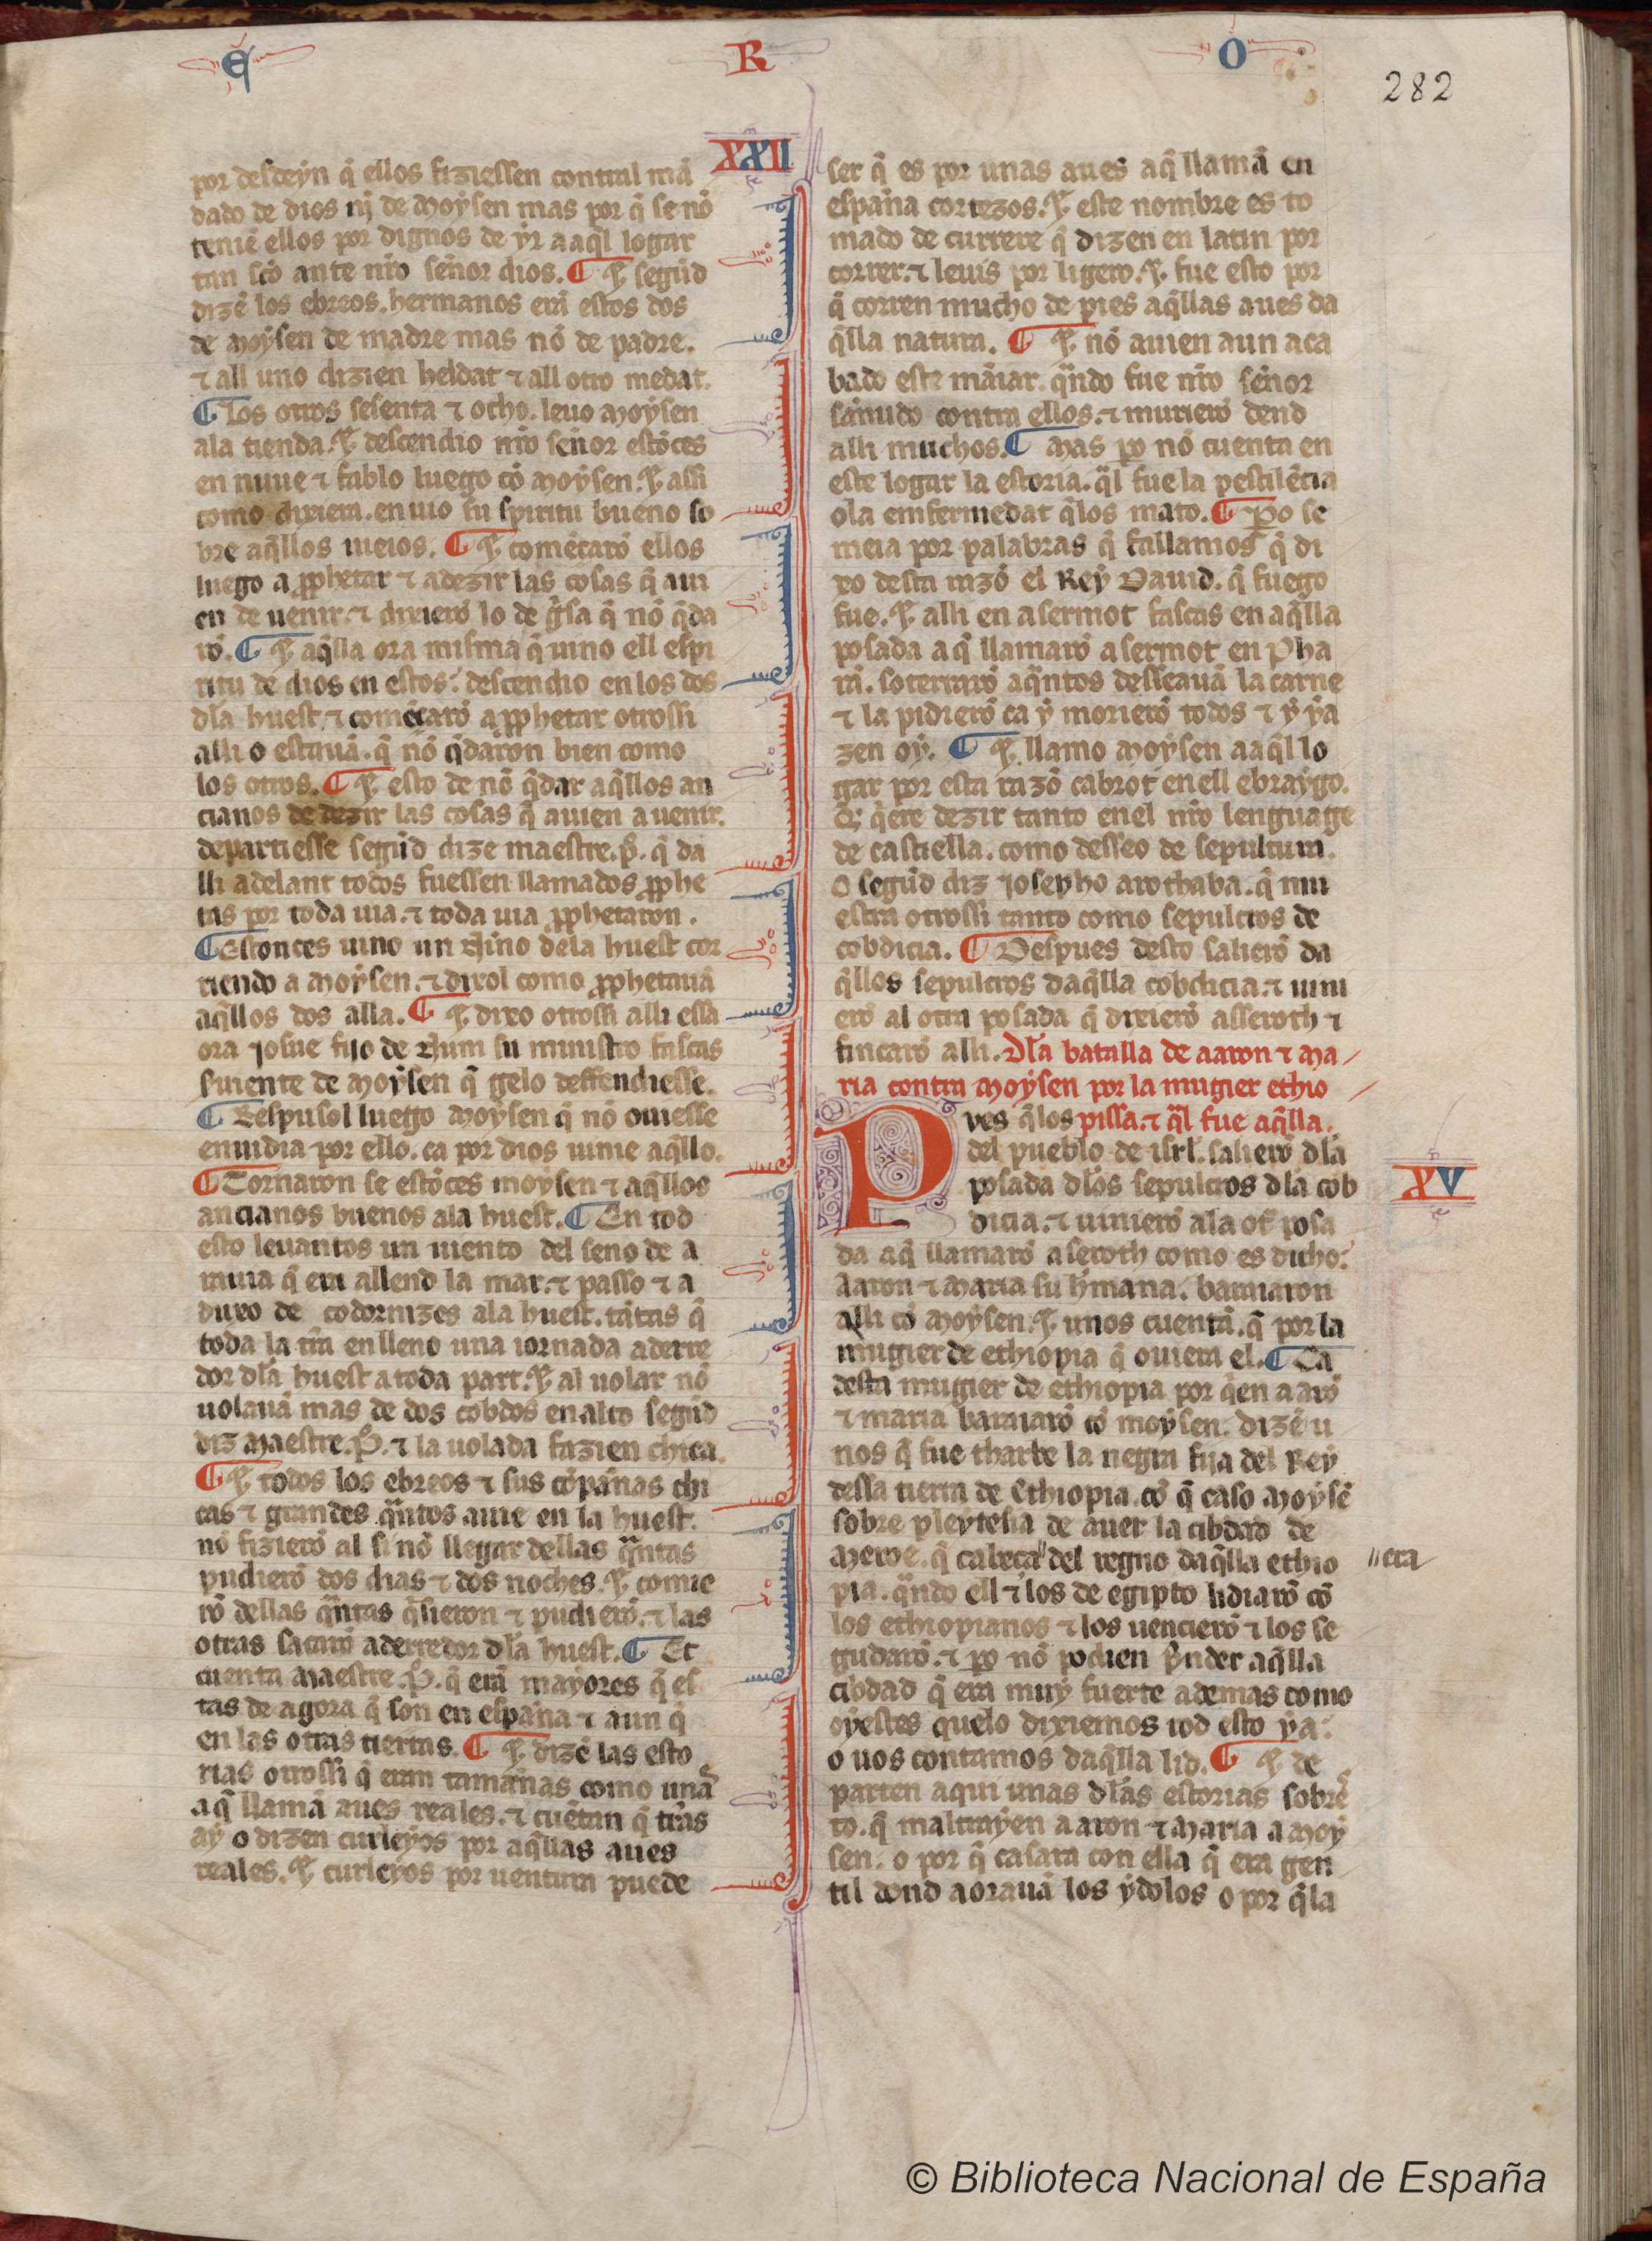 E R O
282
XXII
por desdeyn q̃ ellos fiziessen contral mã
dado de dios nj̃ de moysen mas por q̃ se nõ
teniẽ ellos por dignos de yr a aq̃l logar
tan sc̃o ante nr̃o sennor dios. ¶ ⁊ segũd
dizẽ los ebreos. hermanos erã estos dos
de moysen de madre mas nõ de padre.
⁊ all uno dizien heldat ⁊ all otro medat.
¶ Los otros sesenta ⁊ ocho. leuo moysen
ala tienda. ⁊ descendio nr̃o sennor estõces
en nuue ⁊ fablo luego cõ moysen. ⁊ assi
como dixiera. enuio su spiritu bueno so
bre aq̃llos uieios. ¶ ⁊ comẽcarõ ellos
luego a ꝓphetar ⁊ a dezir las cosas q̃ aui
en de uenir. ⁊ dixierõ lo de gͥsa q̃ nõ q̃da
rõ. ¶ ⁊ aq̃lla ora misma q̃ uino ell espi
ritu de dios en estos: descendio en los dos
dl̃a huest. ⁊ comẽcarõ a ꝓphetar otrossi
alli o estauã. q̃ nõ q̃daron bien como
los otros. ¶ ⁊ esto de nõ q̃dar aq̃llos an
cianos de dezir las cosas q̃ auien a uenir.
departiesse segũd dize maestre. p̃. q̃ da
lli adelant todos fuessen llamados ꝓphe
tas por toda uia. ⁊ toda uia ꝓphetaron.
¶ Estonces uino un nj̃no dela huest cor
riendo a moysen. ⁊ dixol como ꝓphetauã
aq̃llos dos alla. ¶ ⁊ dixo otrossi alli essa
ora Josue fijo de Nũm su ministro fascas
siruiente de moysen q̃ gelo deffendiesse.
¶ Respusol luego moysen q̃ nõ ouiesse
enuidia por ello. ca por dios uinie aq̃llo.
¶ Tornaron se estõces moysen ⁊ aq̃llos
ancianos buenos ala huest. ¶ En tod
esto leuantos un uiento del seno de a
rauia q̃ era allend la mar. ⁊ passo ⁊ a
duxo de codornizes ala huest. tãtas q̃
toda la tr̃ra en lleno una iornada aderre
dor dl̃a huest a toda part. ⁊ al uolar nõ
uolauã mas de dos cobdos en alto segũd
diz Maestre. P̃. ⁊ la uolada fazien chica.
¶ ⁊ todos los ebreos ⁊ sus cõpannas chi
cas ⁊ grandes q̃ntos auie en la huest.
nõ fizierõ al si nõ llegar dellas q̃ntas
pudierõ dos dias ⁊ dos noches. ⁊ comie
rõ dellas q̃ntas q̃sieron ⁊ pudierõ. ⁊ las
otras sacarõ aderredor dl̃a huest. ¶ Et
cuenta Maestre. P̃. q̃ erã mayores q̃ es
tas de agora q̃ son en espanna ⁊ aun q̃
en las otras tierras. ¶ ⁊ dizẽ las esto
rias otrossi q̃ eran tamannas como unas
a q̃ llamã aues reales. ⁊ cuẽtan q̃ tr̃ras
ay o dizen curleyos por aq̃llas aues
reales. ⁊ curleyos por uentura puede
ser q̃ es por unas aues a q̃ llamã en
espanna cortezos. ⁊ este nombre es to
mado de currere q̃ dizen en latin por
correr. ⁊ leuis por ligero. ⁊ fue esto por
q̃ corren mucho de pies aq̃llas aues da
q̃lla natura. ¶ ⁊ nõ auien aun aca
bado este mãiar. q̃ndo fue nr̃o sennor
sannudo contra ellos. ⁊ murierõ dend
alli muchos. ¶ Mas ꝑo nõ cuenta en
este logar la estoria. q̃l fue la pestilẽcia
o la emfermedat q̃ los mato. ¶ Pero se
meia por palabras q̃ fallamos q̃ di
xo desta razõ el Rey Dauid. q̃ fuego
fue. ⁊ alli en asermot fascas en aq̃lla
posada a q̃ llamarõ asermot en Pha
rã. soterrarõ aq̃ntos desseauã la carne
⁊ la pidierõ ca y morierõ todos ⁊ y ya
zen oy. ¶ ⁊ llamo moysen a aq̃l lo
gar por esta razõ cabrot en ell ebraygo.
Q̃ q̃ere dezir tanto en el nr̃o lenguage
de castiella. como desseo de sepultura.
O segũd diz Josepho arothaba. q̃ mu
estra otrossi tanto como sepulcros de
cobdicia. ¶ Despues desto salierõ da
q̃llos sepulcros daq̃lla cobdicia. ⁊ uini
erõ al otra posada q̃ dixierõ asseroth ⁊
fincarõ alli. Dl̃a batalla de aaron ⁊ ma
ria contra moysen por la mugier ethio
pissa. ⁊ q̃l fue aq̃lla.
XV
Pues q̃ los
del pueblo de isrl̃. salierõ dl̃a
posada dl̃os sepulcros dla cob
dicia. ⁊ uinierõ ala ot̃ posa
da a q̃ llamarõ aseroth como es dicho:
Aaron ⁊ Maria su hr̃mana. baraiaron
alli cõ moysen. ⁊ unos cuentã. q̃ por la
mugier de ethiopia q̃ ouiera el. ¶ Ca
desta mugier de ethiopia por q̃en aarõ
⁊ maria baraiarõ cõ moysen. dizẽ u
nos q̃ fue tharbe la negra fija del Rey
dessa tierra de Ethiopia. cõ q̃ caso moysẽ
sobre pleytesia de auer la cibdad de
Meroe. q̃ cabeca" del regno daq̃lla ethio
"era
pia. q̃ndo ell ⁊ los de egipto lidiarõ cõ
los ethiopianos ⁊ los uencierõ ⁊ los se
gudarõ. ⁊ ꝑo nõ podien p̃nder aq̃lla
cibdad q̃ era muy fuerte ademas como
oyestes quelo dixiemos tod esto ya:
o uos contamos daq̃lla lid. ¶ ⁊ de
parten aqui unas dl̃as estorias sobres
to. q̃ maltrayen aaron ⁊ Maria a moy
sen. o por q̃ casara con ella q̃ era gen
til dond aorauã los ydolos o por q̃ la
© Biblioteca Nacional de España